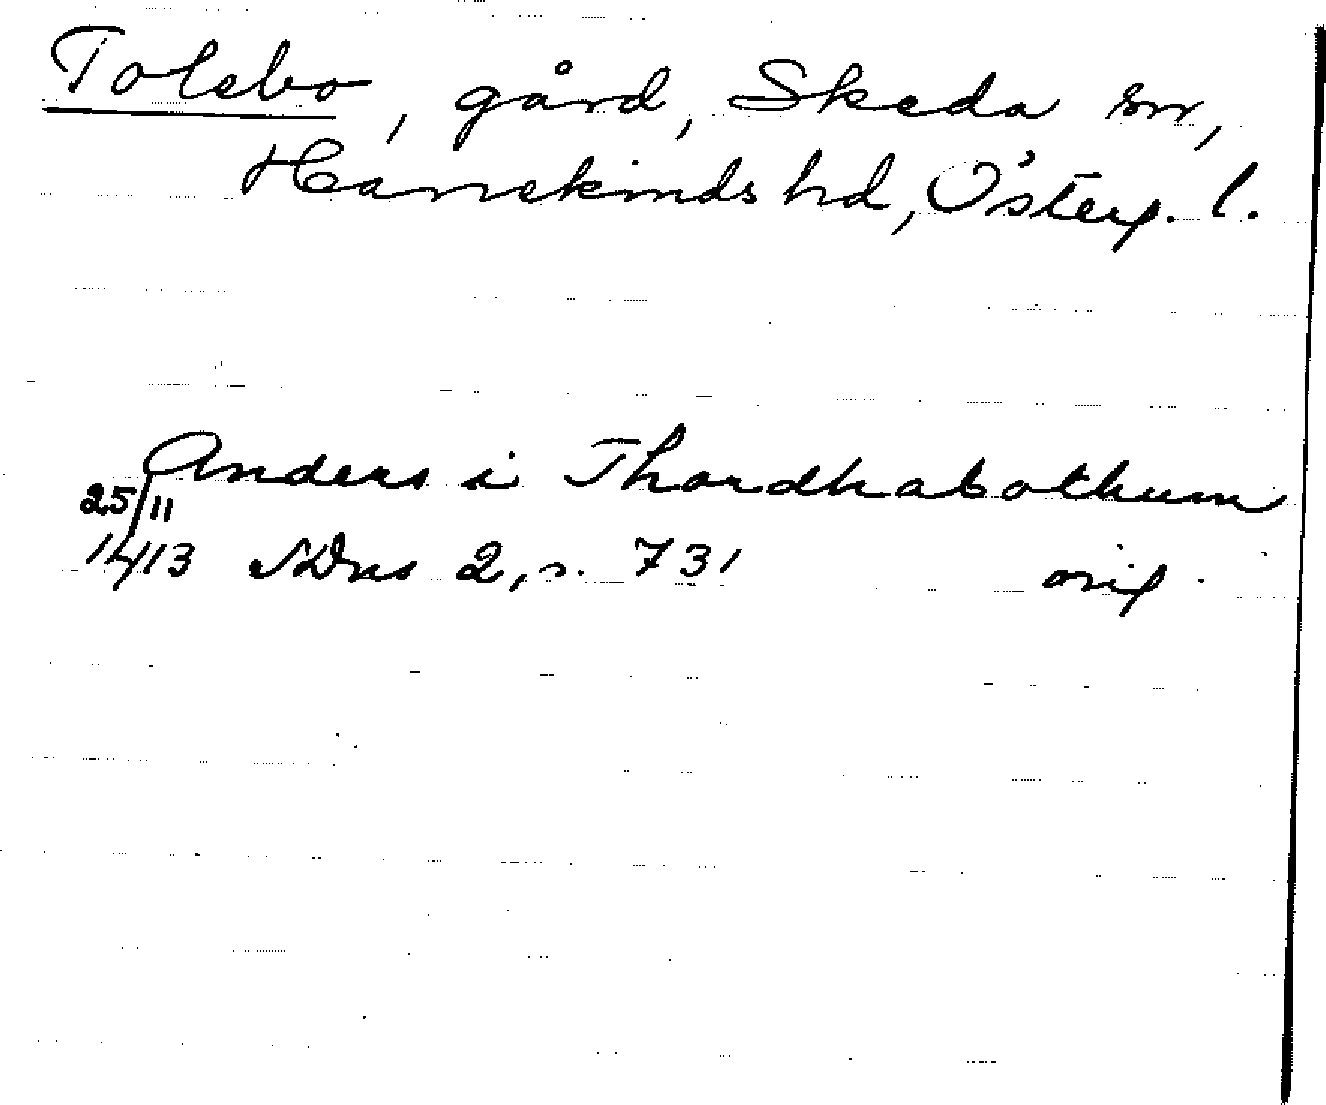 Tolebo, gård, Skeda sn,
Hanekinds hd, Österg. l.
Anders i Thordhabothum
25/11
1413 SDns 2, s. 731 orig.